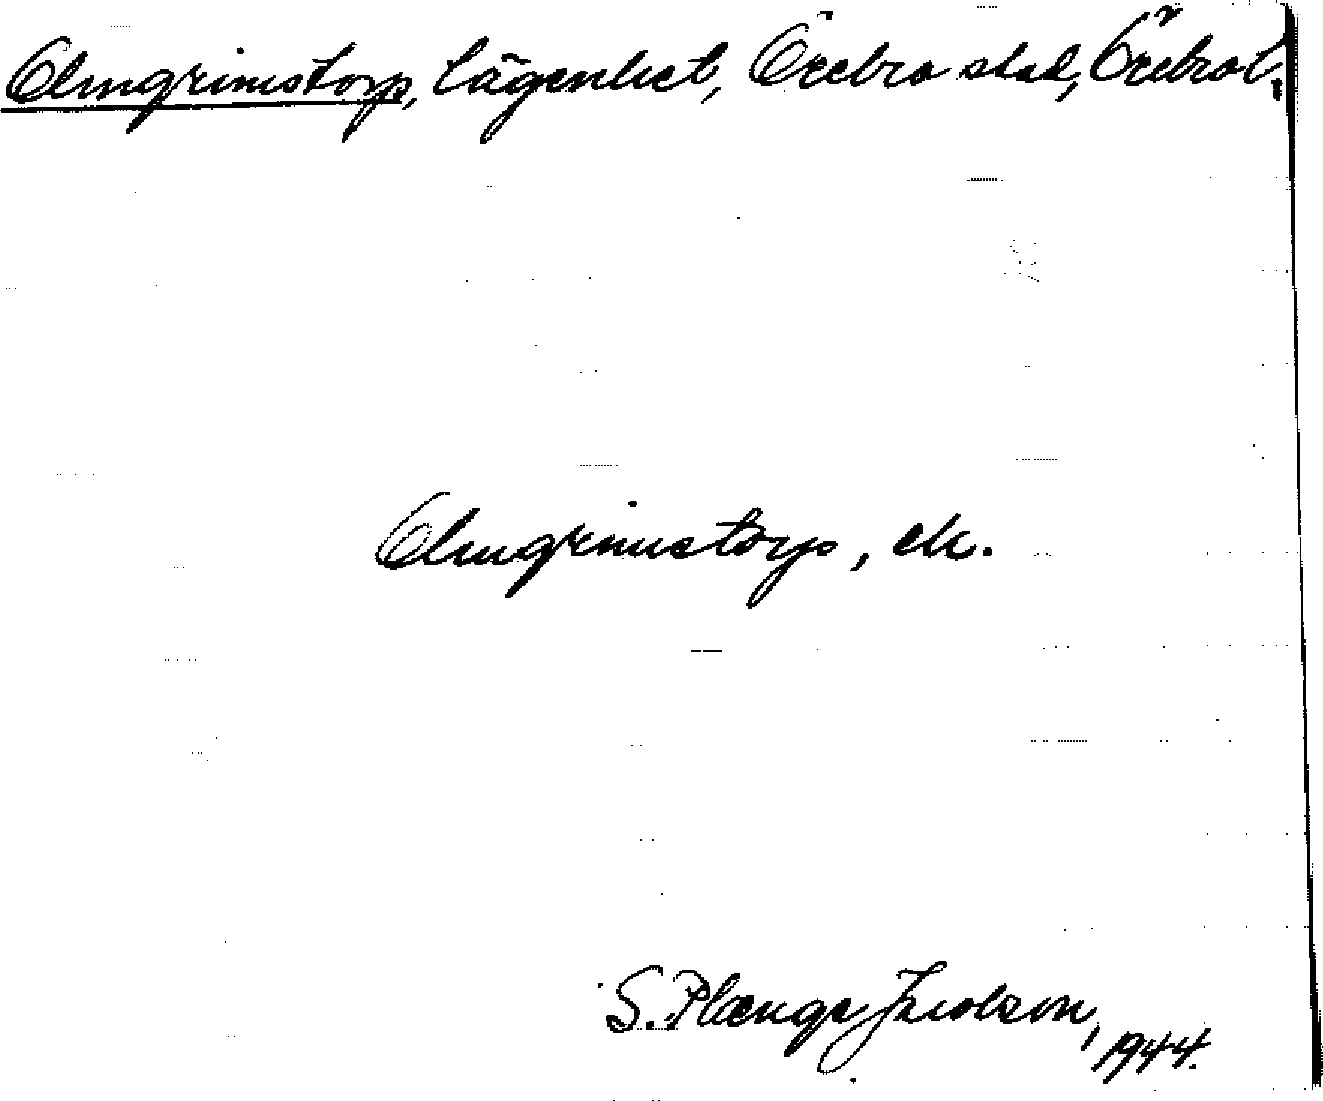 Almgrimstorp, lägenhet, Örebro stad, Örebro l.
Almgrimstorp, ek.
S. Plænge Jacobson,
1944.